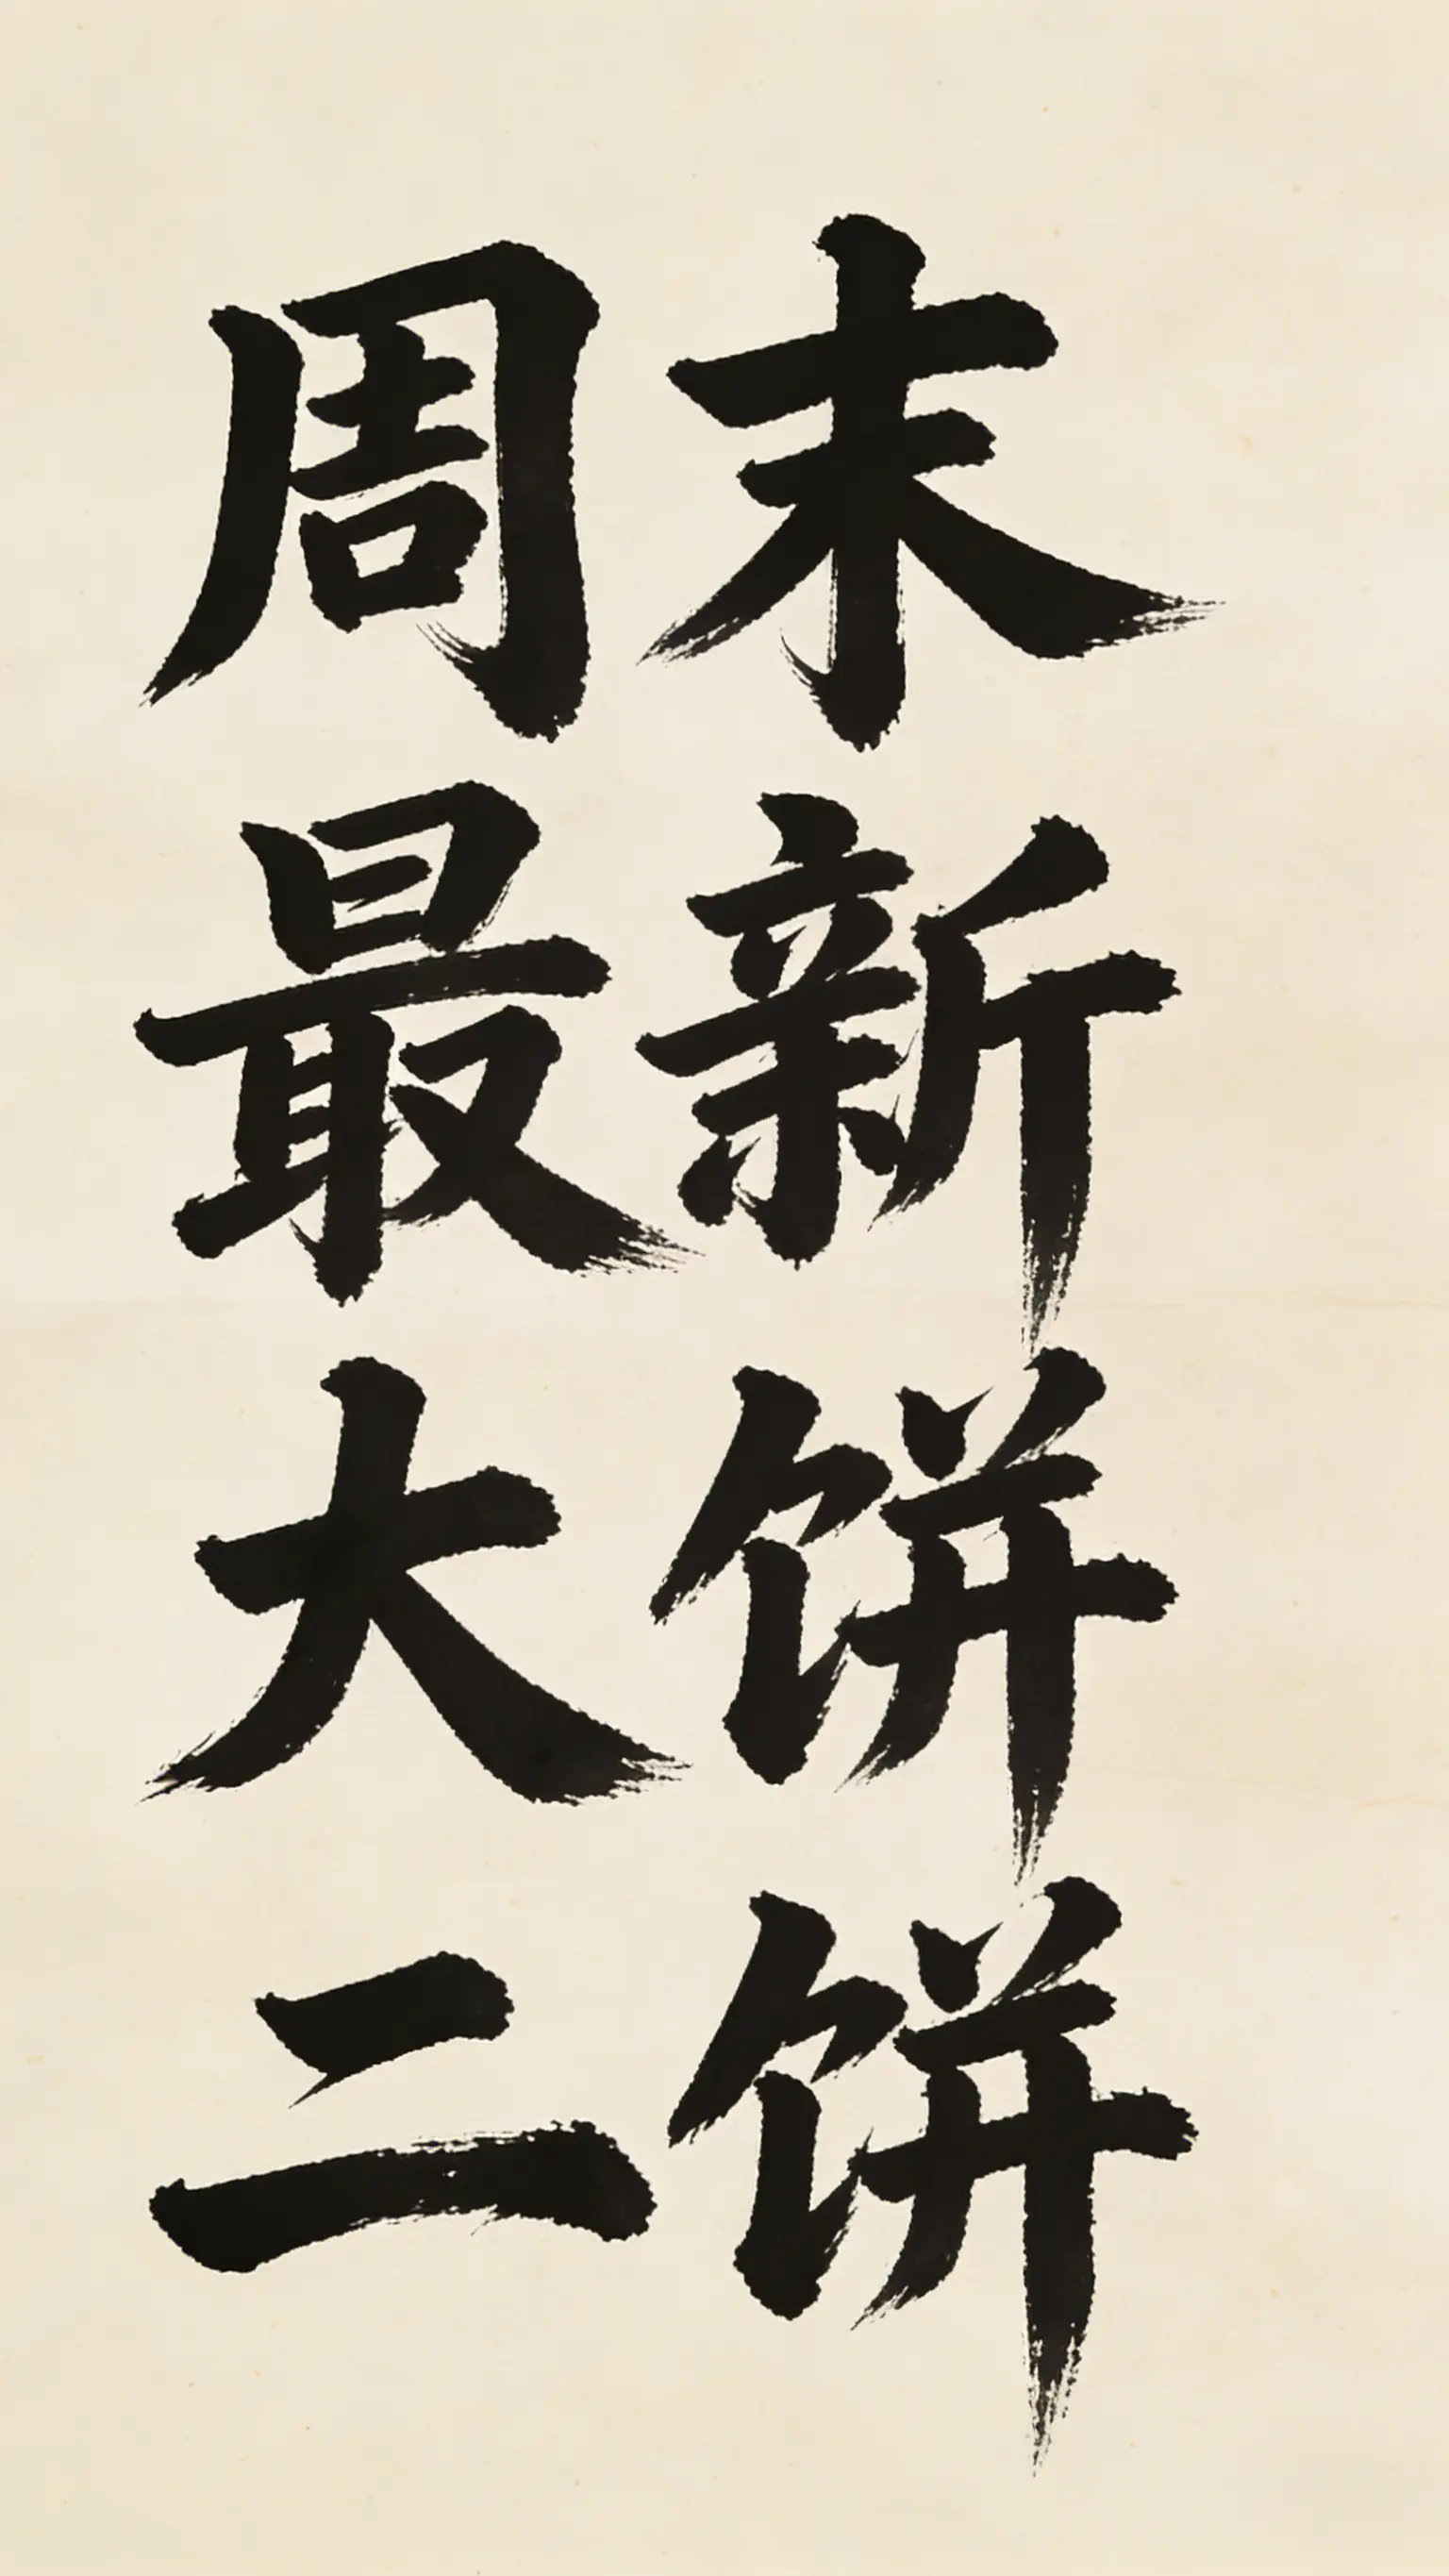 周末
最新
大饼
二饼